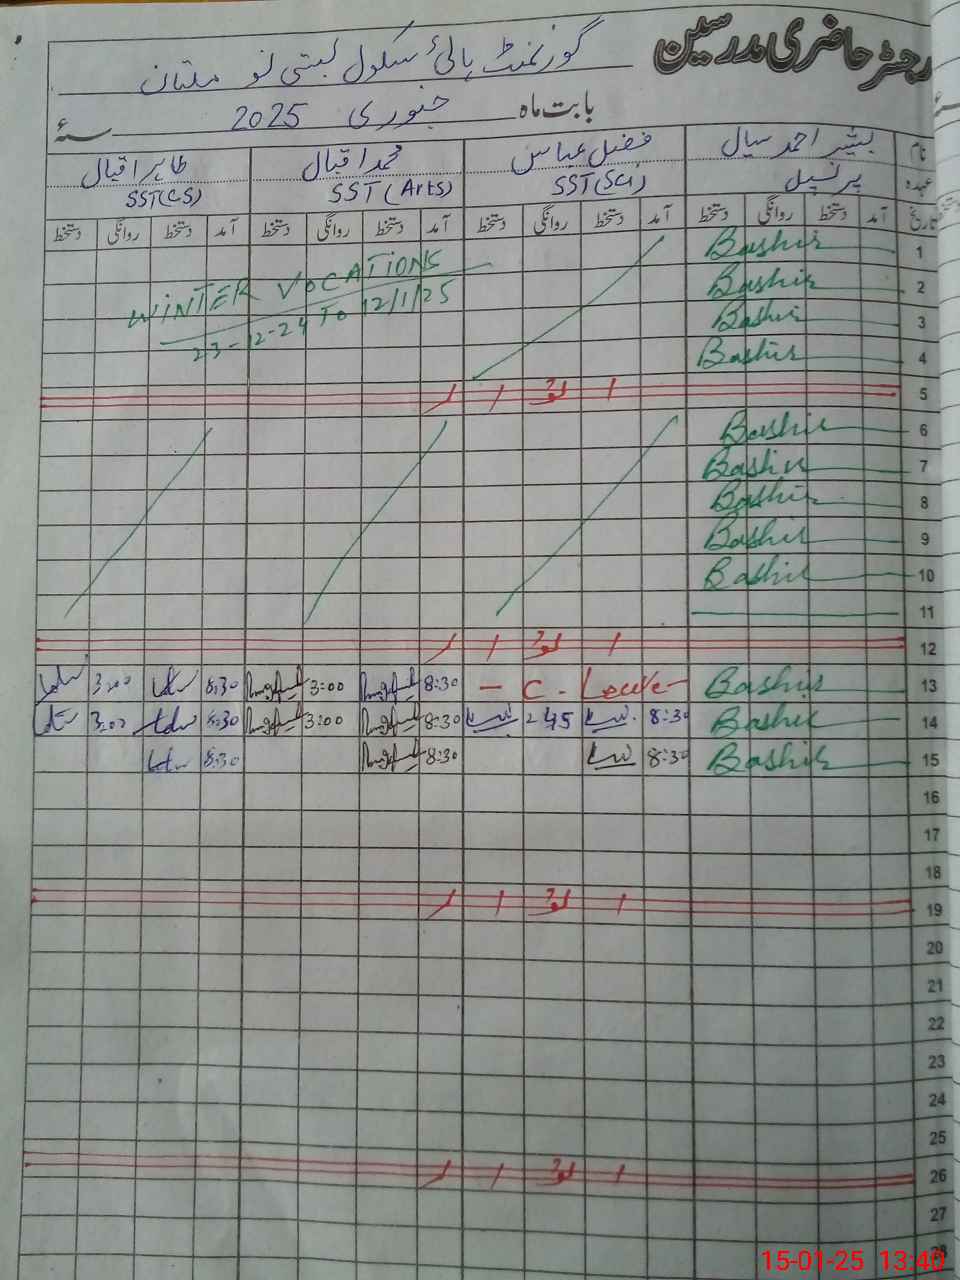 رجسٹر حاضری مدرسین
گورنمنٹ ہائی سکول بستی نو ملتان
بابت ماہ جنوری 2025 سنہء
نام بشیر احمد سیال فضل عباس محمد اقبال طاہر اقبال
عہدہ پرنسپل SST(Sci) SST(Arts) SST(CS)
تاریخ آمد دستخط روانگی دستخط آمد دستخط روانگی دستخط آمد دستخط روانگی دستخط آمد دستخط روانگی دستخط
1 Bashir
WINTER VOCATIONS
2 Bashir
23-12-24 TO 12/1/25
3 Bashir
4 Bashir
5 ا تو ا ر
6 Bashir
7 Bashir
8 Bashir
9 Bashir
10 Bashir
11
12 ا تو ا ر
13 Bashir - C. Leave - 8:30 3:00 8:30 3:00
14 Bashir 8:30 2 45 8:30 3:00 8:30 3:00
15 Bashir 8:30 8:30 8:30
16
17
18
19 ا تو ا ر
20
21
22
23
24
25
26 ا تو ا ر
27
28
15-01-25 13:40